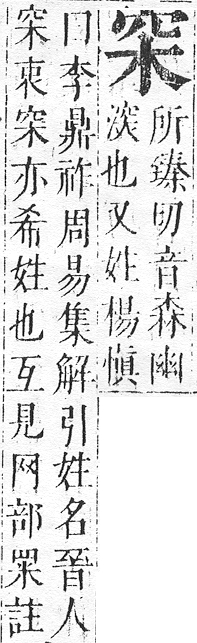 穼
所臻切音森幽
深也又姓楊慎
曰李鼎祚周易集解引姓名晉人
穼衷穼亦希姓也互見网部罙註